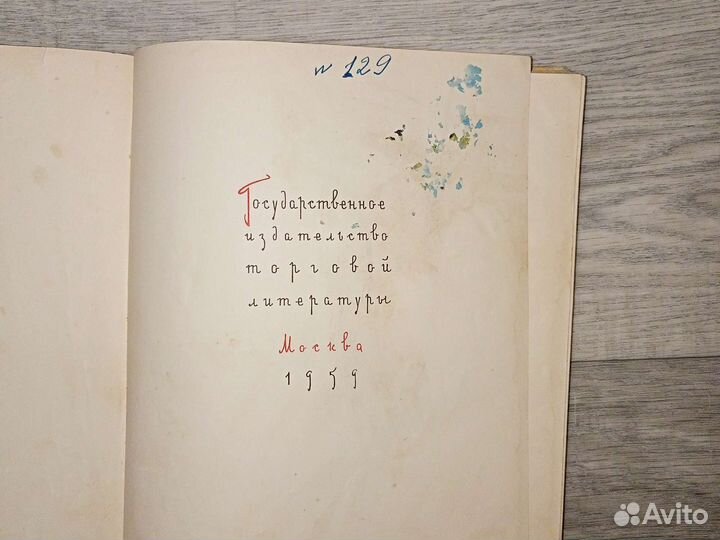 № 129
Государственное
издательство
торговой
литературы
Москва
1959
Avito